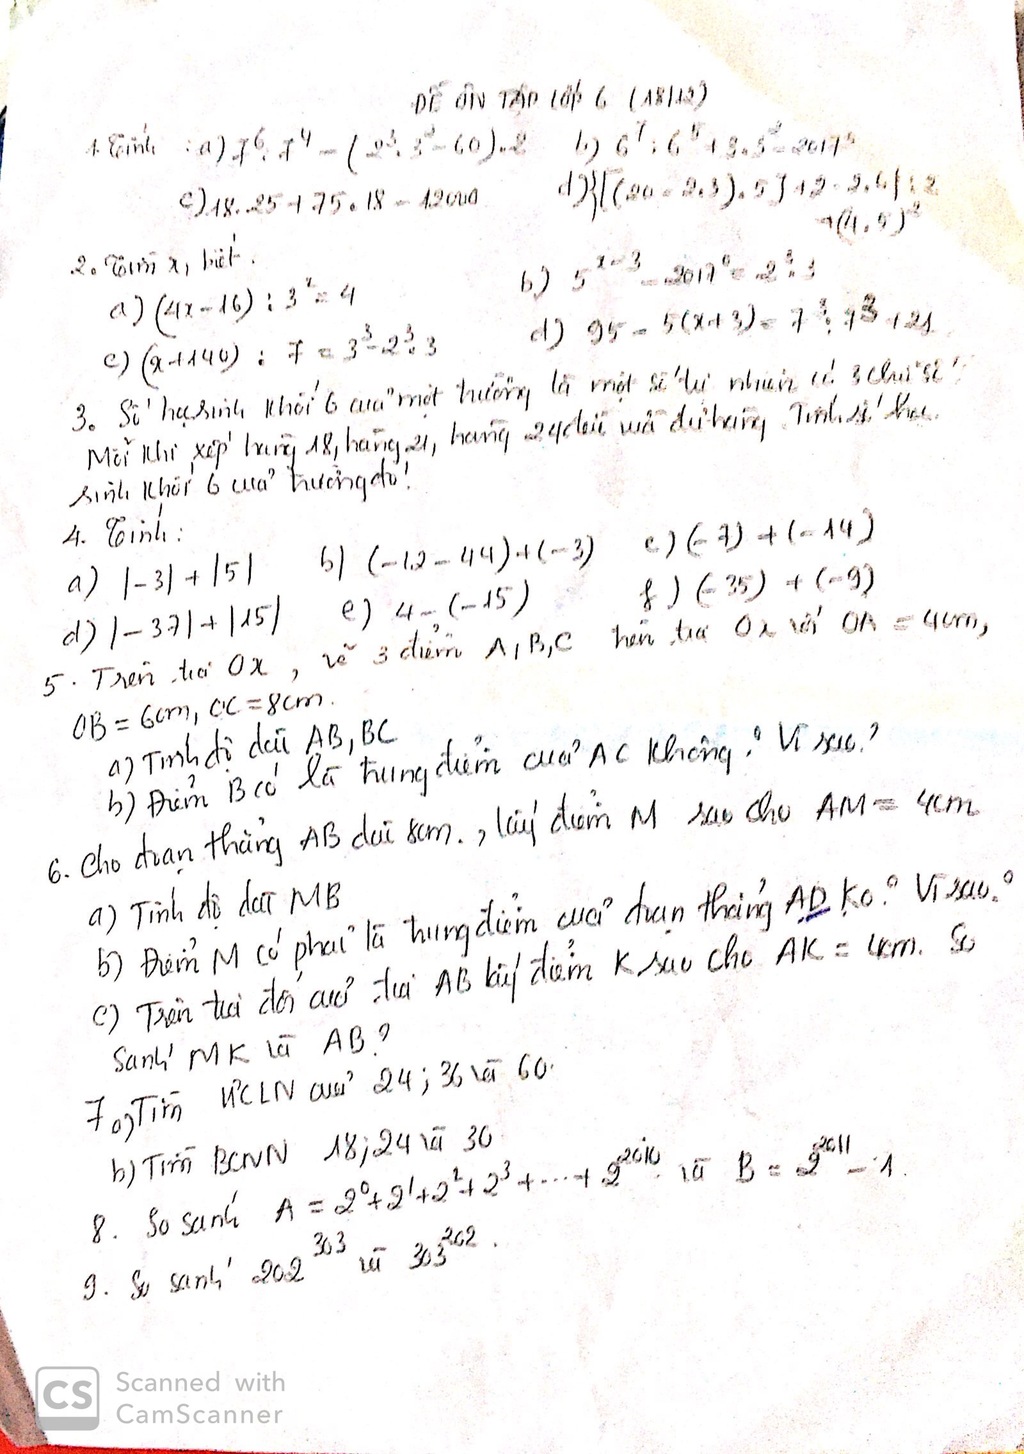 ĐỀ ÔN TẬP LỚP 6 (18/12)
1. Tính : a) 7⁶: 7⁴ - (2³. 3² - 60). 2 b) 6⁷ : 6⁵ + 3.3² - 2017⁰
c) 18. 25 + 75. 18 - 1200 d) {[(20 - 2.3). 5] + 2 - 2.6} : 2
+ (4.5)²
2. Tìm x, biết.
a) (4x - 16) : 3² = 4 b) 5ˣ⁻³ - 2017⁰ = 2³: 3
c) (x + 140) : 7 = 3³ - 2³. 3 d) 95 - 5(x + 3) = 7³: 7³ + 21
3. Số học sinh khối 6 của một trường là một số tự nhiên có 3 chữ số.
Mỗi khi xếp hàng 18, hàng 21, hàng 24 đều vừa đủ hàng. Tính số học
sinh khối 6 của trường đó!
4. Tính :
a) |-3| + |5| b) (-12 - 44) + (-3) c) (-7) + (-14)
d) |-37| + |15| e) 4 - (-15) f) (-35) + (-9)
5. Trên tia Ox, vẽ 3 điểm A, B, C trên tia Ox với OA = 4cm,
OB = 6cm, OC = 8cm.
a) Tính độ dài AB, BC
b) Điểm B có là trung điểm của AC không? Vì sao?
6. Cho đoạn thẳng AB dài 8cm., lấy điểm M sao cho AM = 4cm
a) Tính độ dài MB
b) Điểm M có phải là trung điểm của đoạn thẳng AD ko? Vì sao?
c) Trên tia đối của tia AB lấy điểm K sao cho AK = 4cm. So
sánh MK và AB?
7. a) Tìm ƯCLN của 24; 36 và 60.
b) Tìm BCNN 18; 24 và 30
8. So sánh A = 2⁰ + 2¹ + 2² + 2³ + ... + 2²⁰¹⁰ và B = 2²⁰¹¹ - 1.
9. So sánh 202³⁰³ và 303²⁰².
CS Scanned with
CamScanner